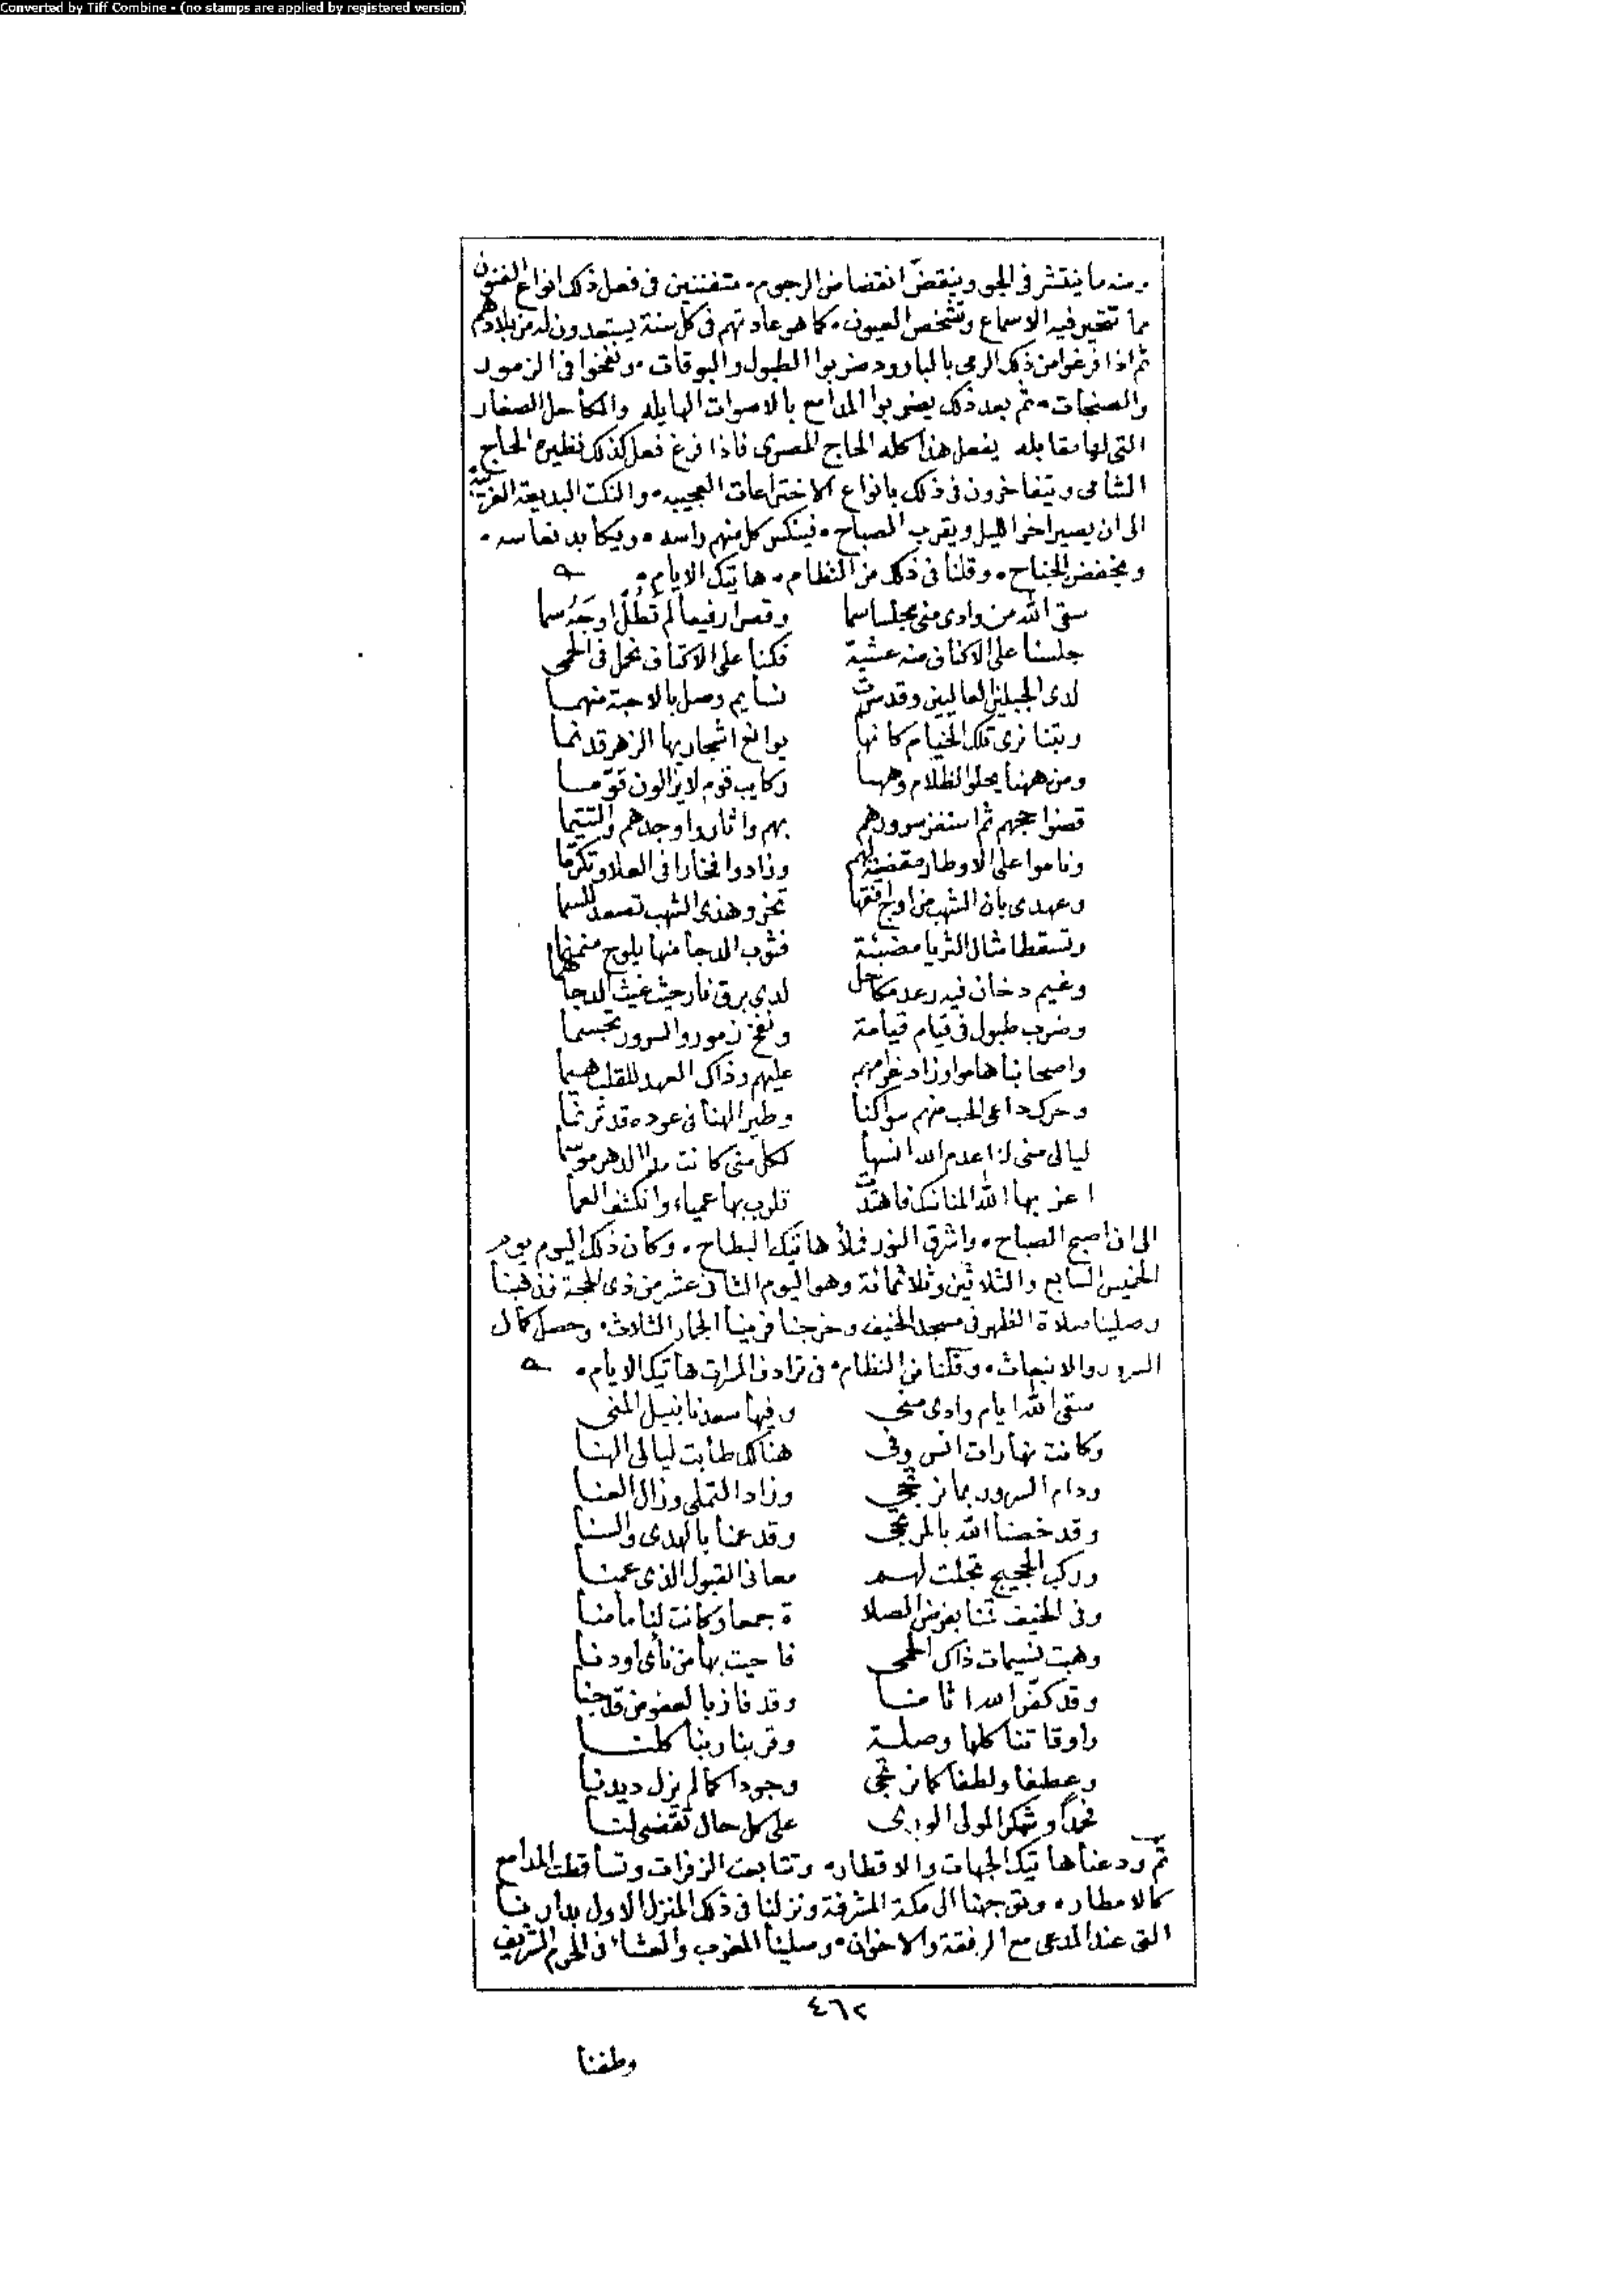 Converted by Tiff Combine - (no stamps are applied by registered version)
ومنه ما ينتشر فى الجو وينقضّ انقضاض الرجوم، متفننين فى فعل ذلك انواع الفنون
مما تتحير فيه الاسماع وتشخص العيون، كما هو عادتهم فى كل سنة يستعدون له من بلادهم
ثم اذا فرغوا من ذلك الرمى بالبارود ضربوا الطبول والبوقات، ونفخوا فى الزمور
والصنجات، ثم بعد ذلك يضربوا المدافع بالاصوات الهايله والمكاحل الصغار
التى لها مقابله يفعل هذا كله الحاج المصرى فاذا فرغ فعل كذلك نظيره الحاج
الشامى ويتفاخرون فى ذلك بانواع الاختراعات العجيبه، والنكت البديعة الغريبة
الى ان يصير اخر الليل ويقرب الصباح، فينكس كل منهم راسه، ويكابد نعاسه،
ويخفض الجناح، وقلنا فى ذلك من النظام، هاتيك الايام،
سقى الله من وادى منى مجلسا سما وقصرا رفيعا لم تطل اوجه سما
جلسنا على الاكناف منه عشية فكنا على الاكتاف نحمل فى الحمى
لدى الجبلين العاليين وقد سرت نسايم وصل بالاحبة منهما
وبتنا نرى تلك الخيام كانها يوانع اشجار بها الزهر قد نما
ومن ههنا يحلو الظلام وههنا ركايب قوم لا يزالون قوّما
قضوا حجهم ثم استفز سرورهم بهم واثاروا وجدهم والتتيما
وناموا على الاوطار مقضية لهم وزادوا فخارا فى العلا وتكرّما
وعهدى بان الشهب من اوج افقها تخر وهذى الشهب تصعد للسما
وتسقط امثال الثريا مضيئة فثوب الدجا منها يلوح منمنما
وغيم دخان فيه رعد مكاحل لدى برق نار حيث غيث الدجا
وضرب طبول فى قيام قيامة ونفخ زمور والسرور تجسما
واصحابنا هاموا وزاد غرامهم عليهم وذاك العهد للقلب هيما
وحرك داعى الحب منهم سواكنا وطير الهنا فى عوده قد ترنما
ليالى منى لا اعدم الله انسها لكل منى كانت مدا الدهر موسما
اعز بها الله المناسك فاهتدت قلوب بها عمياء وانكشف العما
الى ان اصبح الصباح، واشرق النور فملأ هاتيك البطاح، وكان ذلك اليوم يوم
الخميس السابع والثلاثين وثلاثمائة وهو اليوم الثانى عشر من ذى الحجة فذهبنا
وصلينا صلاة الظهر فى مسجد الخيف وخرجنا فرمينا الجمار الثلاث، وحصل كمال
السرور والانبعاث، وقلنا من النظام، فى ترادف المسرات هاتيك الايام،
سقى الله ايام وادى منى وفيها سعدنا بنيل المنى
وكانت نهارات انس وفى هناك طابت ليالى الهنا
ودام السرور بما نرتجى وزاد التملى وزال العنا
وقد خصنا الله بالمرتجى وقد عمنا بالهدى والسنا
وركب الحجيج تجلت لهم معانى القبول الذى عمنا
وفى الخيف قمنا بفرض الصلا ة جمعا وكانت لنا مأمنا
وهبت نسيمات ذاك الحمى فاحيت بها من نأى او دنا
وقد كفّر الله اثامنا وقد فاز بالعفو من قد جنا
واوقاتنا كلها وصلة وقربنا ربنا كلنا
وعطفا ولطفا كما نرتجى وجودا كما لم يزل ديدنا
فحمدًا وشكرا لمولى الورى على كل حال تقضى لنا
ثم ودعنا هاتيك الجهات والاقطار، وتتابعت الزفرات وتساقطت المدامع
كالامطار، وتوجهنا الى مكة المشرفة ونزلنا فى ذلك المنزل الاول بدارنا
التى عند المدعى مع الرفقة والاخوان، وصلينا المغرب والعشاء فى الحرم الشريف
٤٦٢
وطفنا